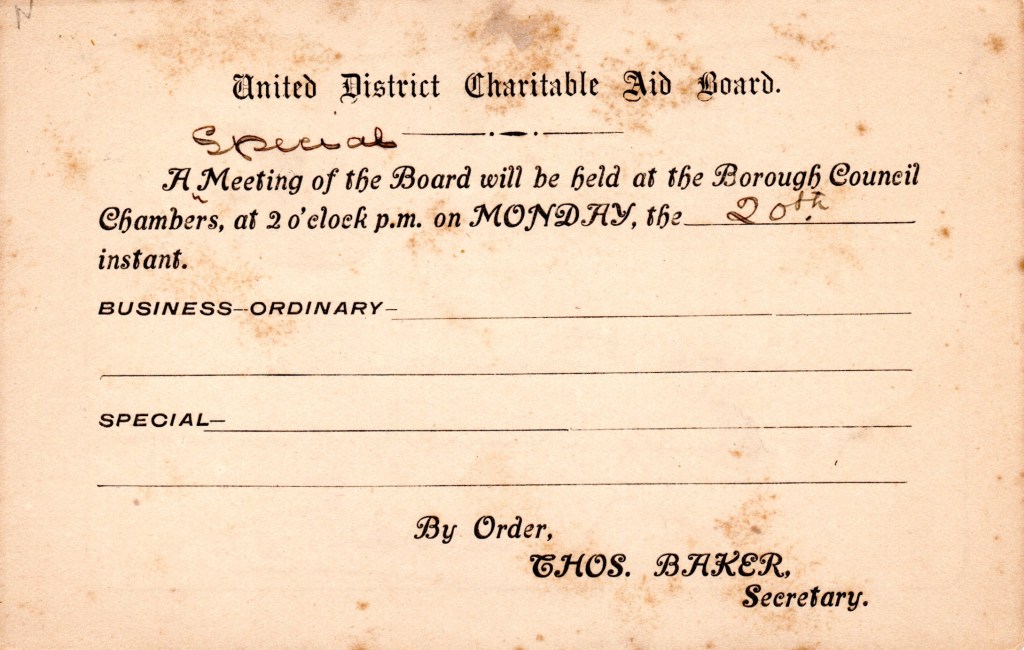 United District Charitable Aid Board.
Special
A Meeting of the Board will be held at the Borough Council
Chambers, at 2 o'clock p.m. on MONDAY, the 20th.
instant.
BUSINESS—ORDINARY—
SPECIAL—
By Order,
THOS. BAKER,
Secretary.